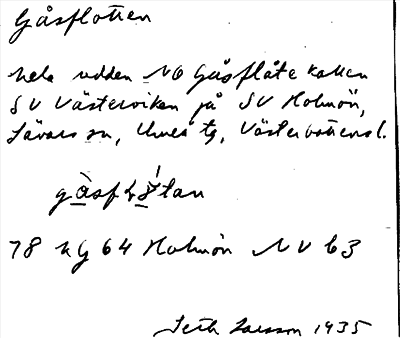 Gåsflotten
hela udden NO Gåsflåtekallen
SV Västerviken på SV Holmön,
Sävars sn, Umeå tg, Västerbottensl.
78 kg 64 Holmön NV b3
Seth Larsson 1935